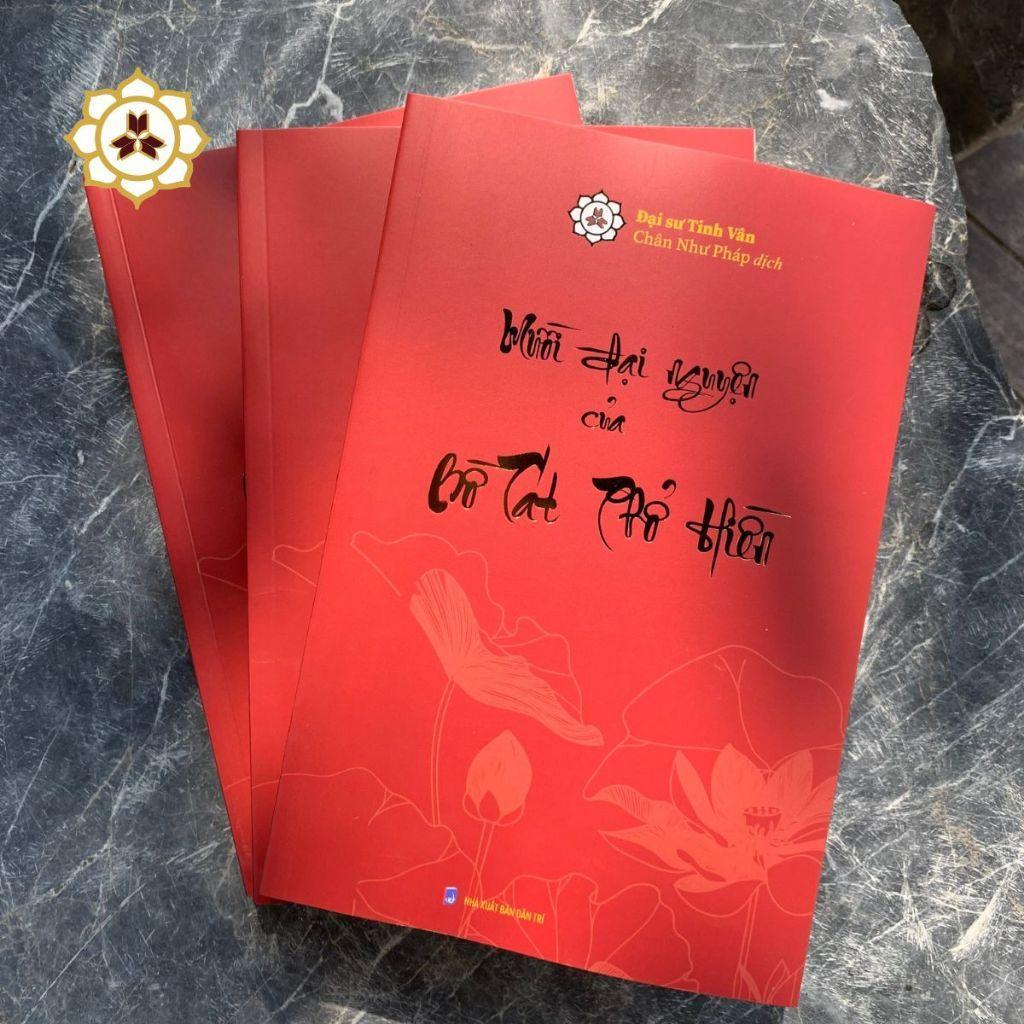 Đại sư Tinh Vân
Chân Như Pháp dịch
Mười đại nguyện
của
Bồ Tát Phổ Hiền
NHÀ XUẤT BẢN DÂN TRÍ